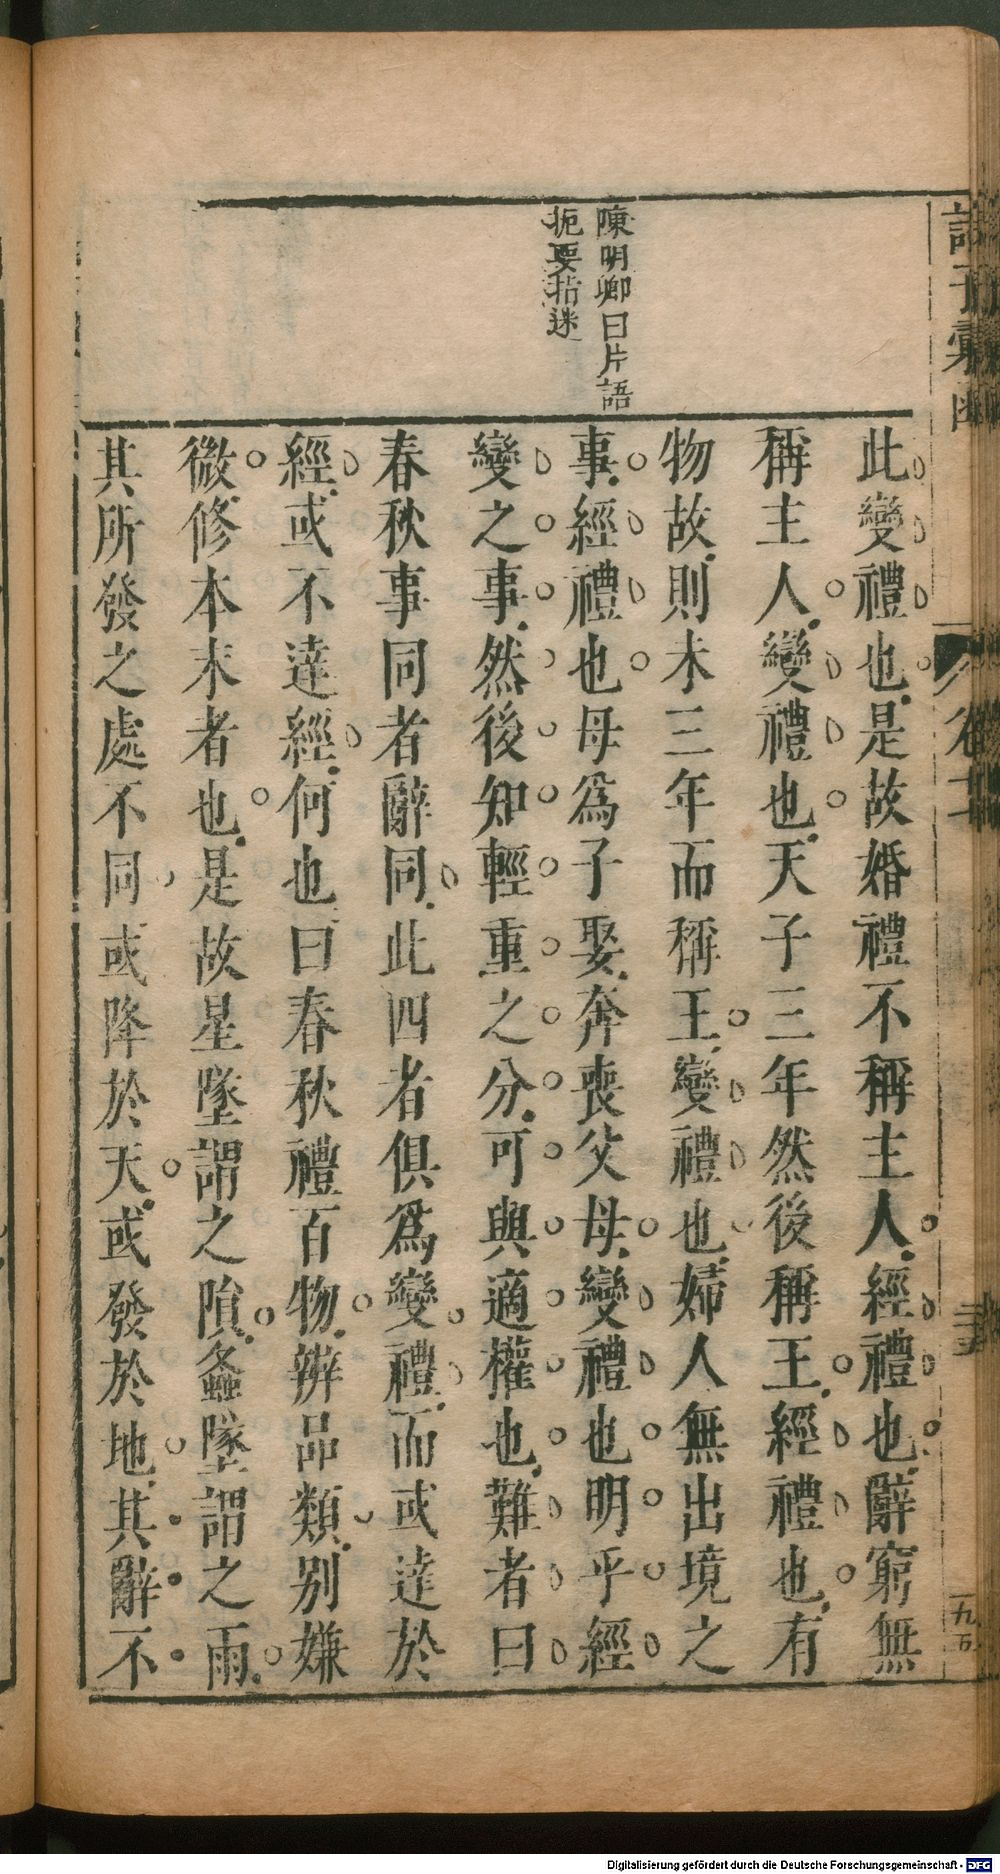 諸子彙函
卷
陳明卿曰片語
扼要指迷
此變禮也是故婚禮不稱主人經禮也辭窮無
稱主人變禮也天子三年然後稱王經禮也有
物故則未三年而稱王變禮也婦人無出境之
事經禮也母爲子娶奔喪父母變禮也明乎經
變之事然後知輕重之分可與適權也難者曰
春秋事同者辭同此四者俱爲變禮而或達於
經或不達經何也曰春秋禮百物辨品類別嫌
微修本末者也是故星墜謂之隕螽墜謂之雨
其所發之處不同或降於天或發於地其辭不
Digitalisierung gefördert durch die Deutsche Forschungsgemeinschaft - DFG